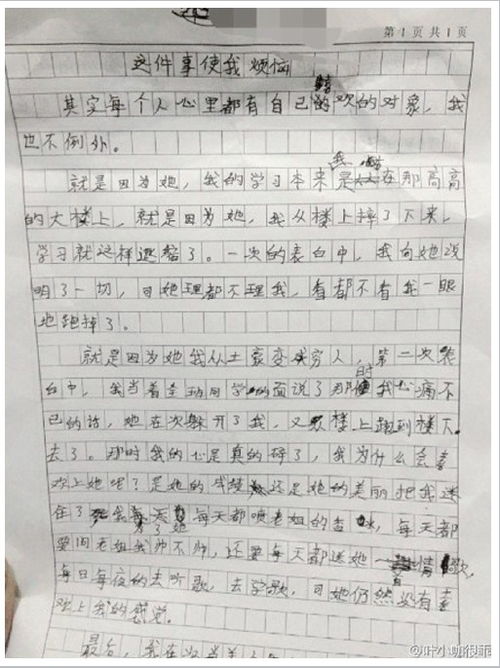 第1页共1页
这件事使我烦恼
其实每个人心里都有自己喜欢的对象,我
也不例外。
就是因为她,我的学习本来是在那高高
的大楼上,就是因为她,我从楼上摔了下来,
学习就这样退缩了。一次的表白中,我向她说
明了一切,可她理都不理我,看都不看我一眼
地跑掉了。
就是因为她我从土豪变成穷人,第二次表
白中,我当着全班同学的面说了那时我心痛不
已的话,她在次躲开了我,又从楼上跑到楼下
去了。那时我的心是真的碎了,我为什么会喜
欢上她呢?是她的成绩还是她的美丽把我迷
住了 每天都喷老姐的香水,每天都
要问老姐我帅不帅,还要每天都送她一首情歌,
每日每夜的去听歌,去学歌,可她仍然没有喜
欢上我的感觉。
最后,我在
@叶小咖很乖